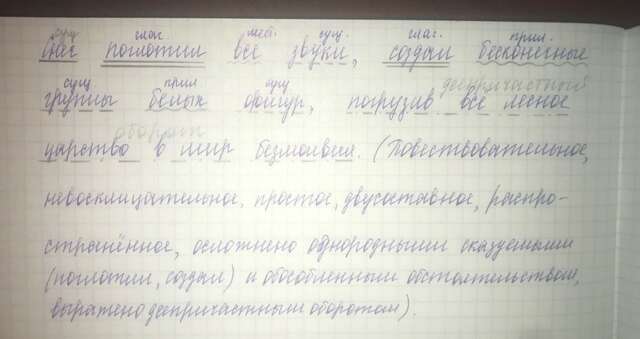 сущ глаг. мест. сущ. глаг. прил.
поглотил все звуки, создал бесконечные
сущ прил сущ деепричастный
группы белых фигур, погрузив всё лесное
оборот
царство в мир безмолвия. (Повествовательное,
невосклицательное, простое, двусоставное, распро-
странённое, осложнено однородными сказуемыми
(поглотил, создал) и обособленным обстоятельством,
выражено деепричастным оборотом).